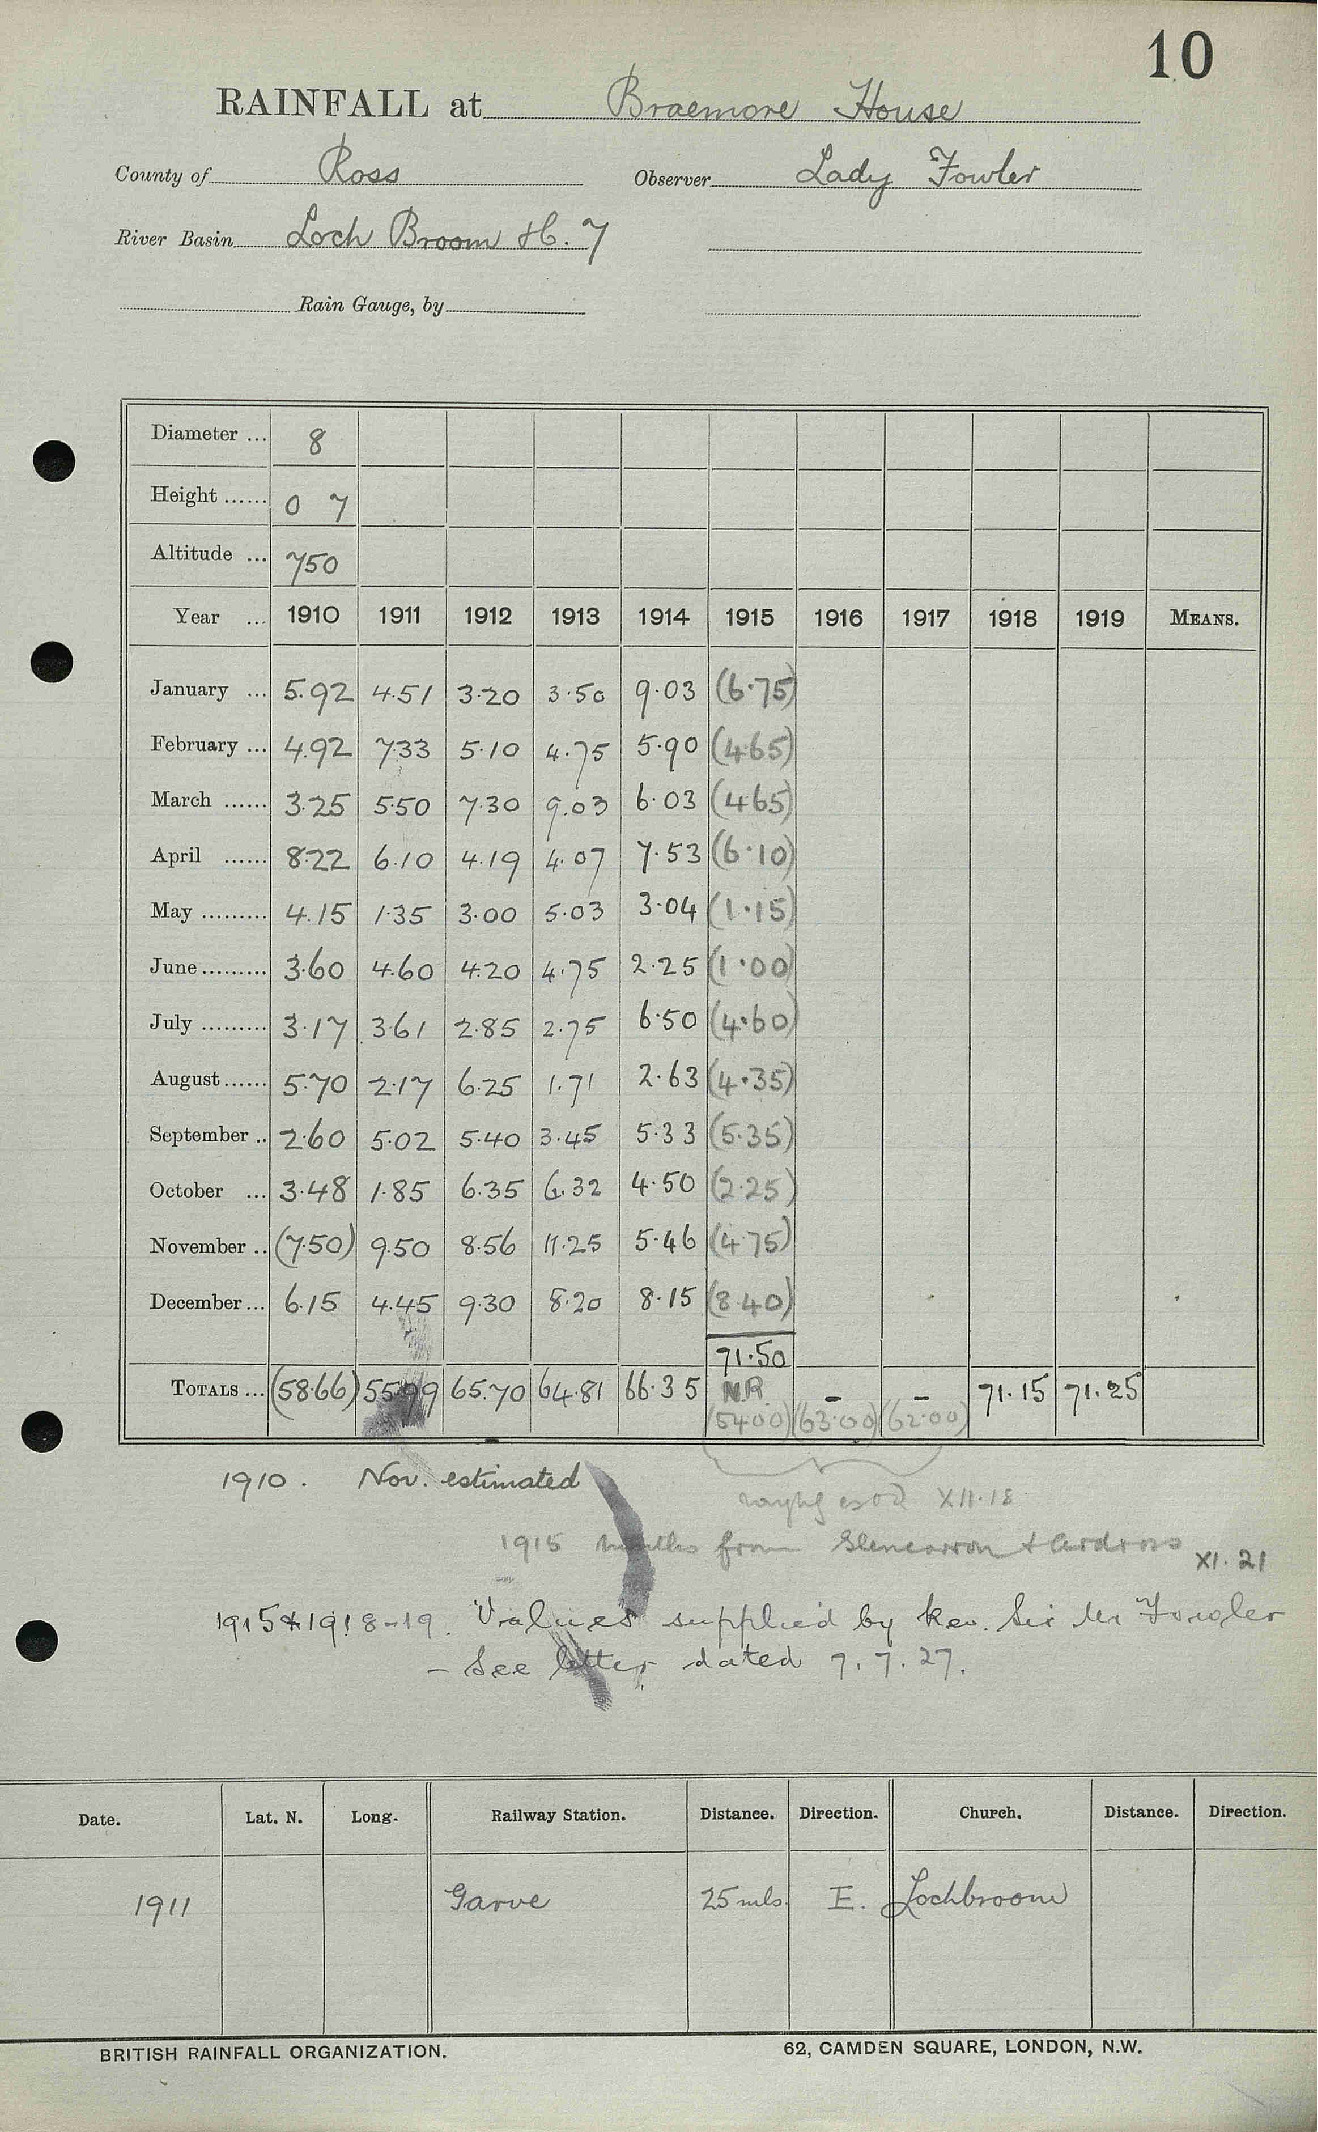 10
RAINFALL at Braemore House
County of Ross Observer Lady Fowler
River Basin Loch Broom H. 7
Rain Gauge, by
Diameter ... 8
Height ...... 0 7
Altitude ... 750
Year ... 1910 1911 1912 1913 1914 1915 1916 1917 1918 1919 MEANS.
January ... 5.92 4.51 3.20 3.50 9.03 (6.75)
February ... 4.92 7.33 5.10 4.75 5.90 (4.65)
March ...... 3.25 5.50 7.30 9.03 6.03 (4.65)
April ...... 8.22 6.10 4.19 4.07 7.53 (6.10)
May ......... 4.15 1.35 3.00 5.03 3.04 (1.15)
June ......... 3.60 4.60 4.20 4.75 2.25 (1.00)
July ......... 3.17 3.61 2.85 2.75 6.50 (4.60)
August ...... 5.70 2.17 6.25 1.71 2.63 (4.35)
September .. 2.60 5.02 5.40 3.45 5.33 (5.35)
October ... 3.48 1.85 6.35 6.32 4.50 (2.25)
November .. (7.50) 9.50 8.56 11.25 5.46 (4.75)
December ... 6.15 4.45 9.30 8.20 8.15 (8.40)
71.50
TOTALS ... (58.66) 55.99 65.70 64.81 66.35 N.R. - - 71.15 71.25
(54.00) (63.00) (62.00)
1910. Nov. estimated
XII.18
1915 months from Glencarron & Ardross XI.21
1915 & 1918-19. Values supplied by Rev. Sir M Fowler
- See letter dated 7.7.27.
Date. Lat. N. Long. Railway Station. Distance. Direction. Church. Distance. Direction.
1911 Garve 25 mls. E. Lochbroom
BRITISH RAINFALL ORGANIZATION. 62, CAMDEN SQUARE, LONDON, N.W.